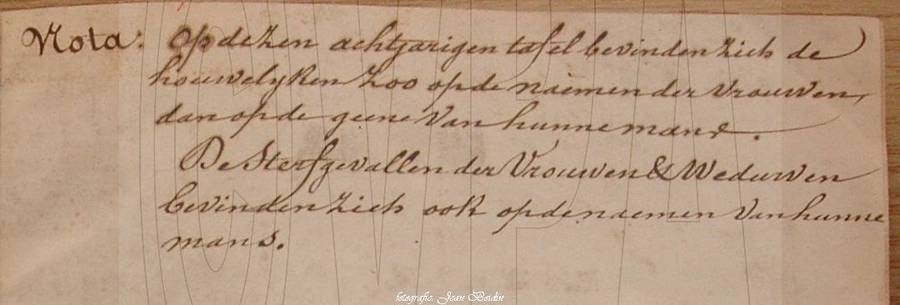 Nota: Op dezen achtjarigen tafel bevinden zich de
houwelyken zoo op de naemen der vrouwen,
dan op de geene van hunne mans.
De Sterfgevallen der Vrouwen & Weduwen
bevinden zich ook op de naemen van hunne
mans.
fotografie: Jean Beidin